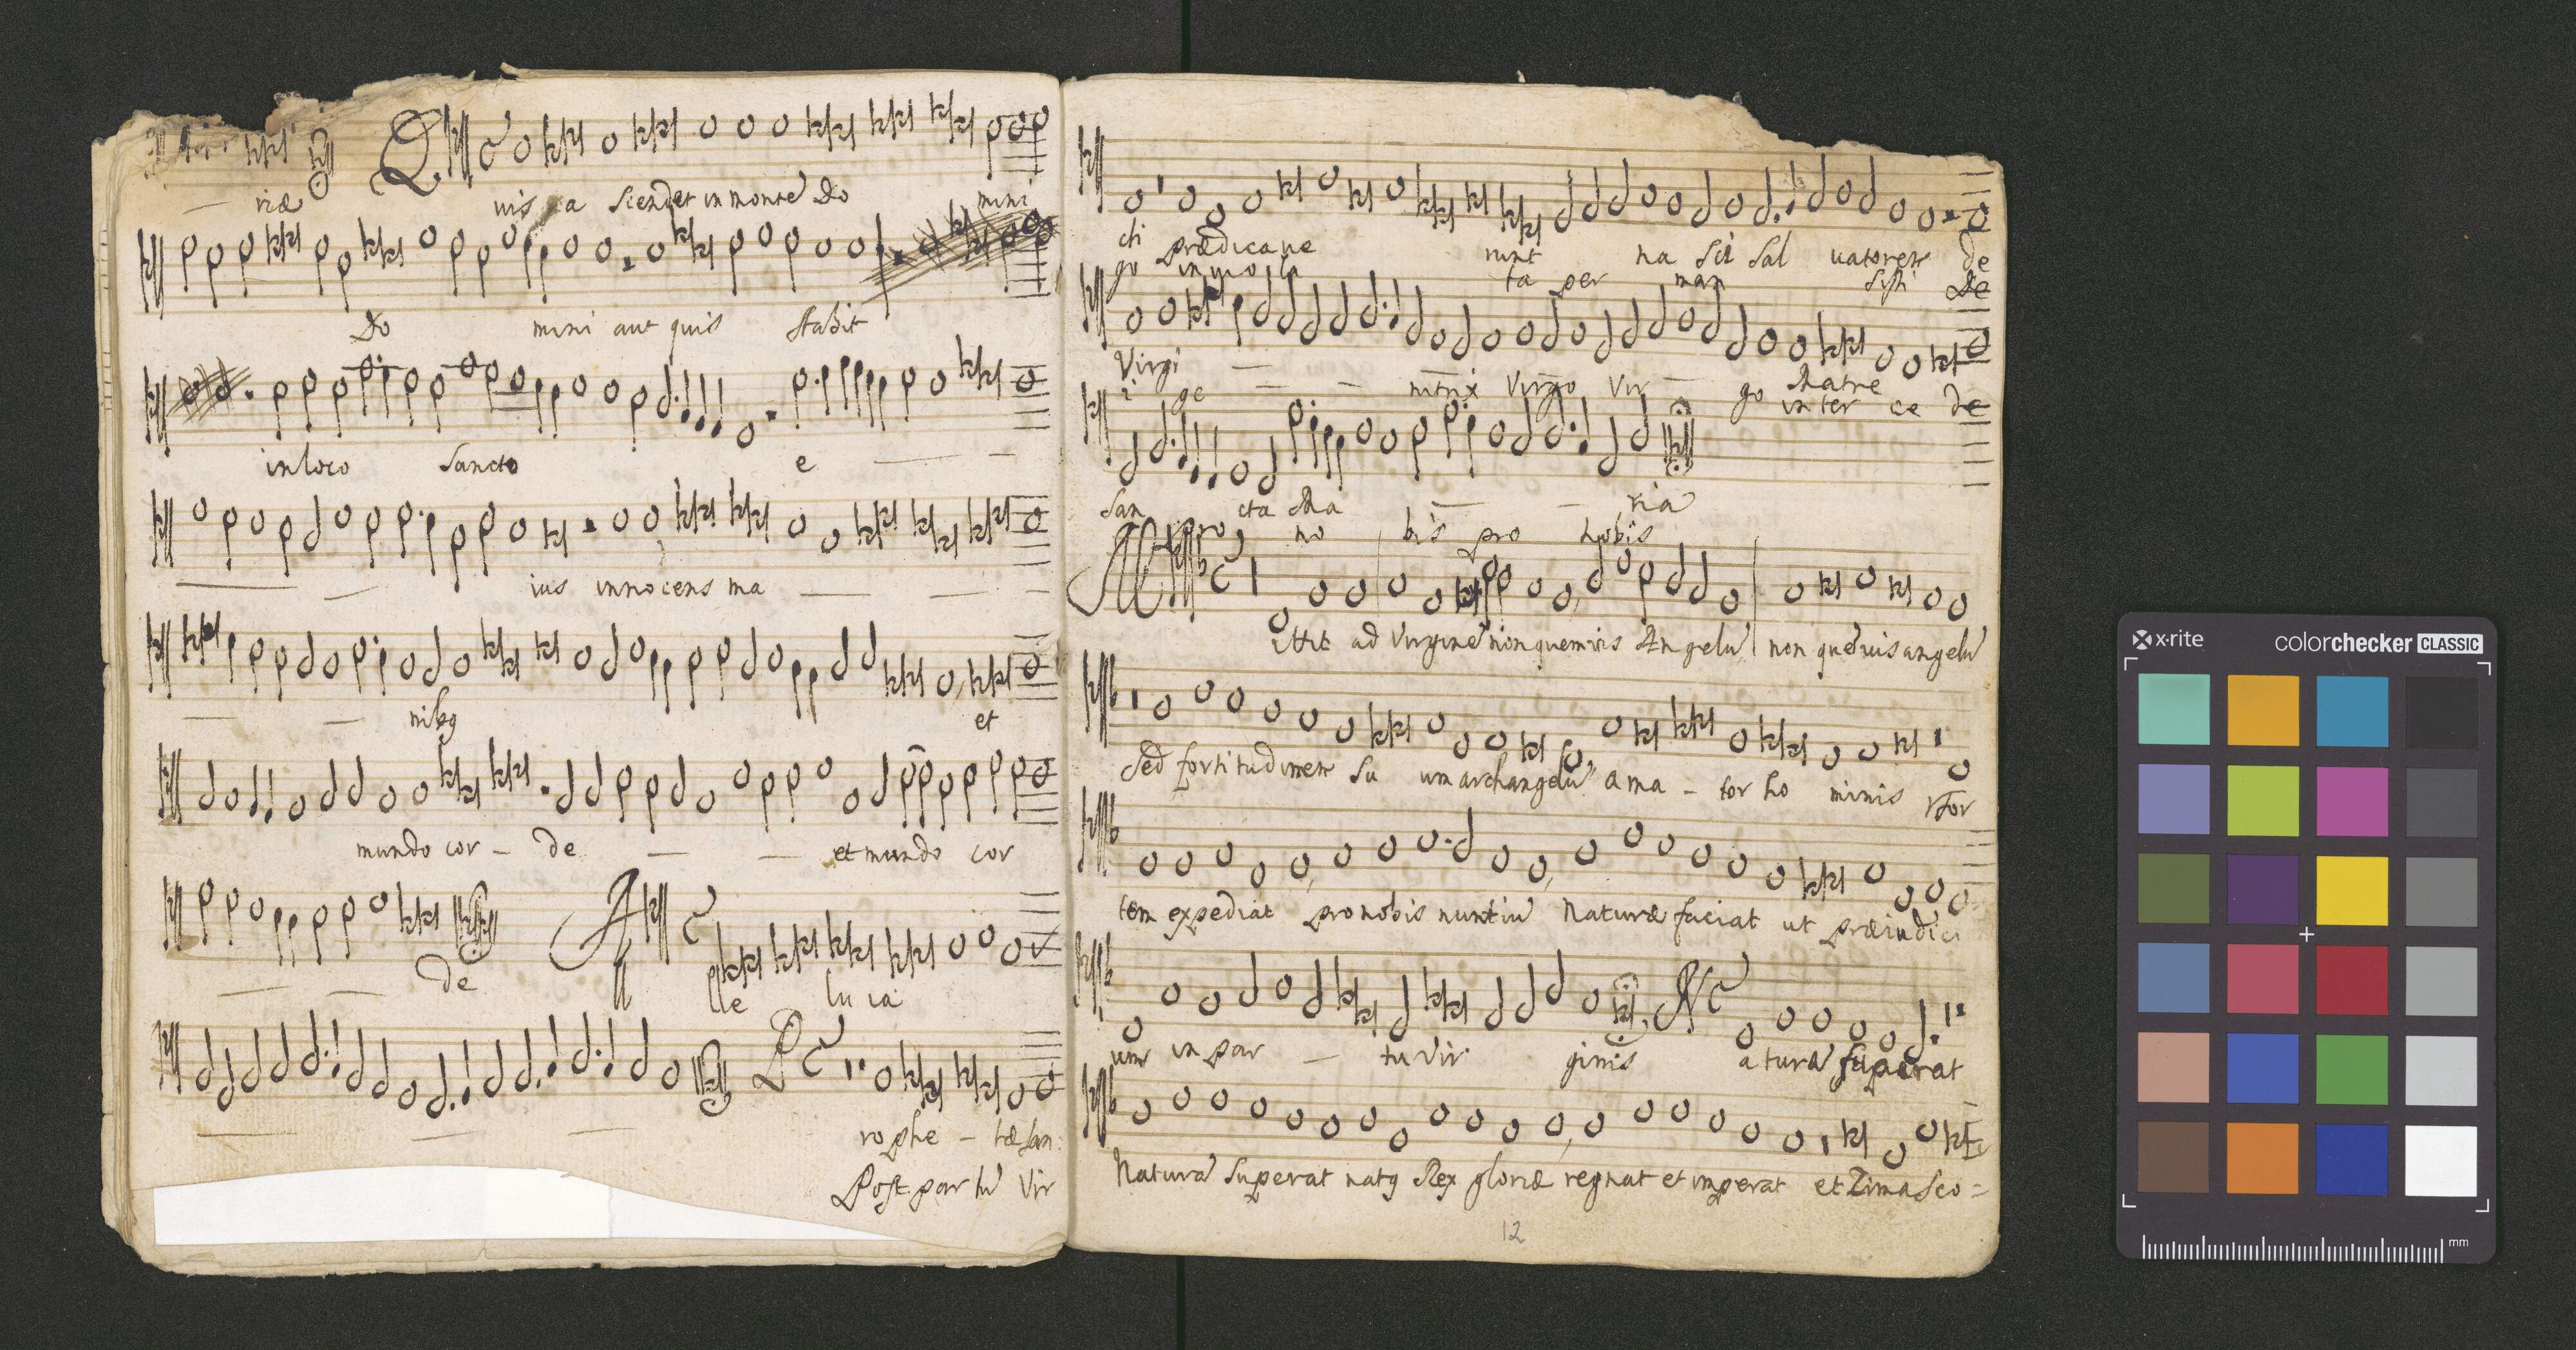 riæ Q uis a scendet in monte Do mini
Do mini aut quis stabit
in loco sancto e
ius innocens ma
nibq et
mundo cor - de et mundo cor
de A lle lu ia
P ro phe - tæ san
Post partu Vir
cti prædicave runt na sci sal vatorem de
go inviola ta per man sisti De
Virgi nitrix Virgo Vir go Matre
i ge inter ce de
San cta Ma ria
pro no bis pro nobis
M ittit ad Virgine non quemvis Angelu non quevis angelu
Sed fortitudinem su um archangelu a ma - tor ho minis For
tem expediat pro nobis nuntiu Naturæ faciat ut præiudici
um in par tu Vir ginis N aturæ superat
Natura superat natq Rex gloriæ regnat et imperat et Zima sco =
12
x·rite
colorchecker CLASSIC
mm